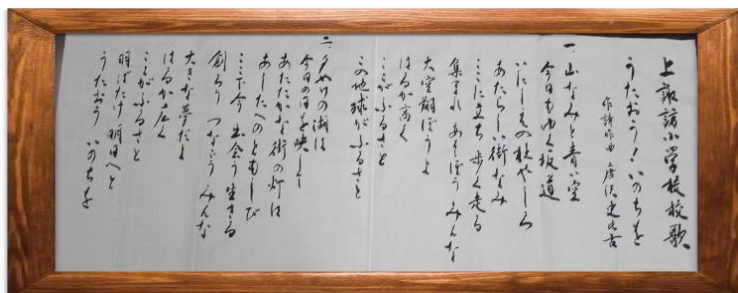 上諏訪小学校校歌
うたおう!いのちを
作詩作曲 唐沢史比古
一、山なみと青い空
今日もゆく坂道
いにしえの杜やしろ
あたらしい街なみ
ここに立ち歩く走る
集まれ あそぼう みんな
大空翔ぼうよ
はるか高く
ここがふるさと
この地球がふるさと
二、夕やけの湖は
今日の日を映し
あたたかな街の灯は
あしたへのともしび
ここで今 出会う生きる
創ろう つなごう みんな
大きな夢だよ
はるか広く
ここがふるさと
羽ばたけ 明日へと
うたおう いのちを